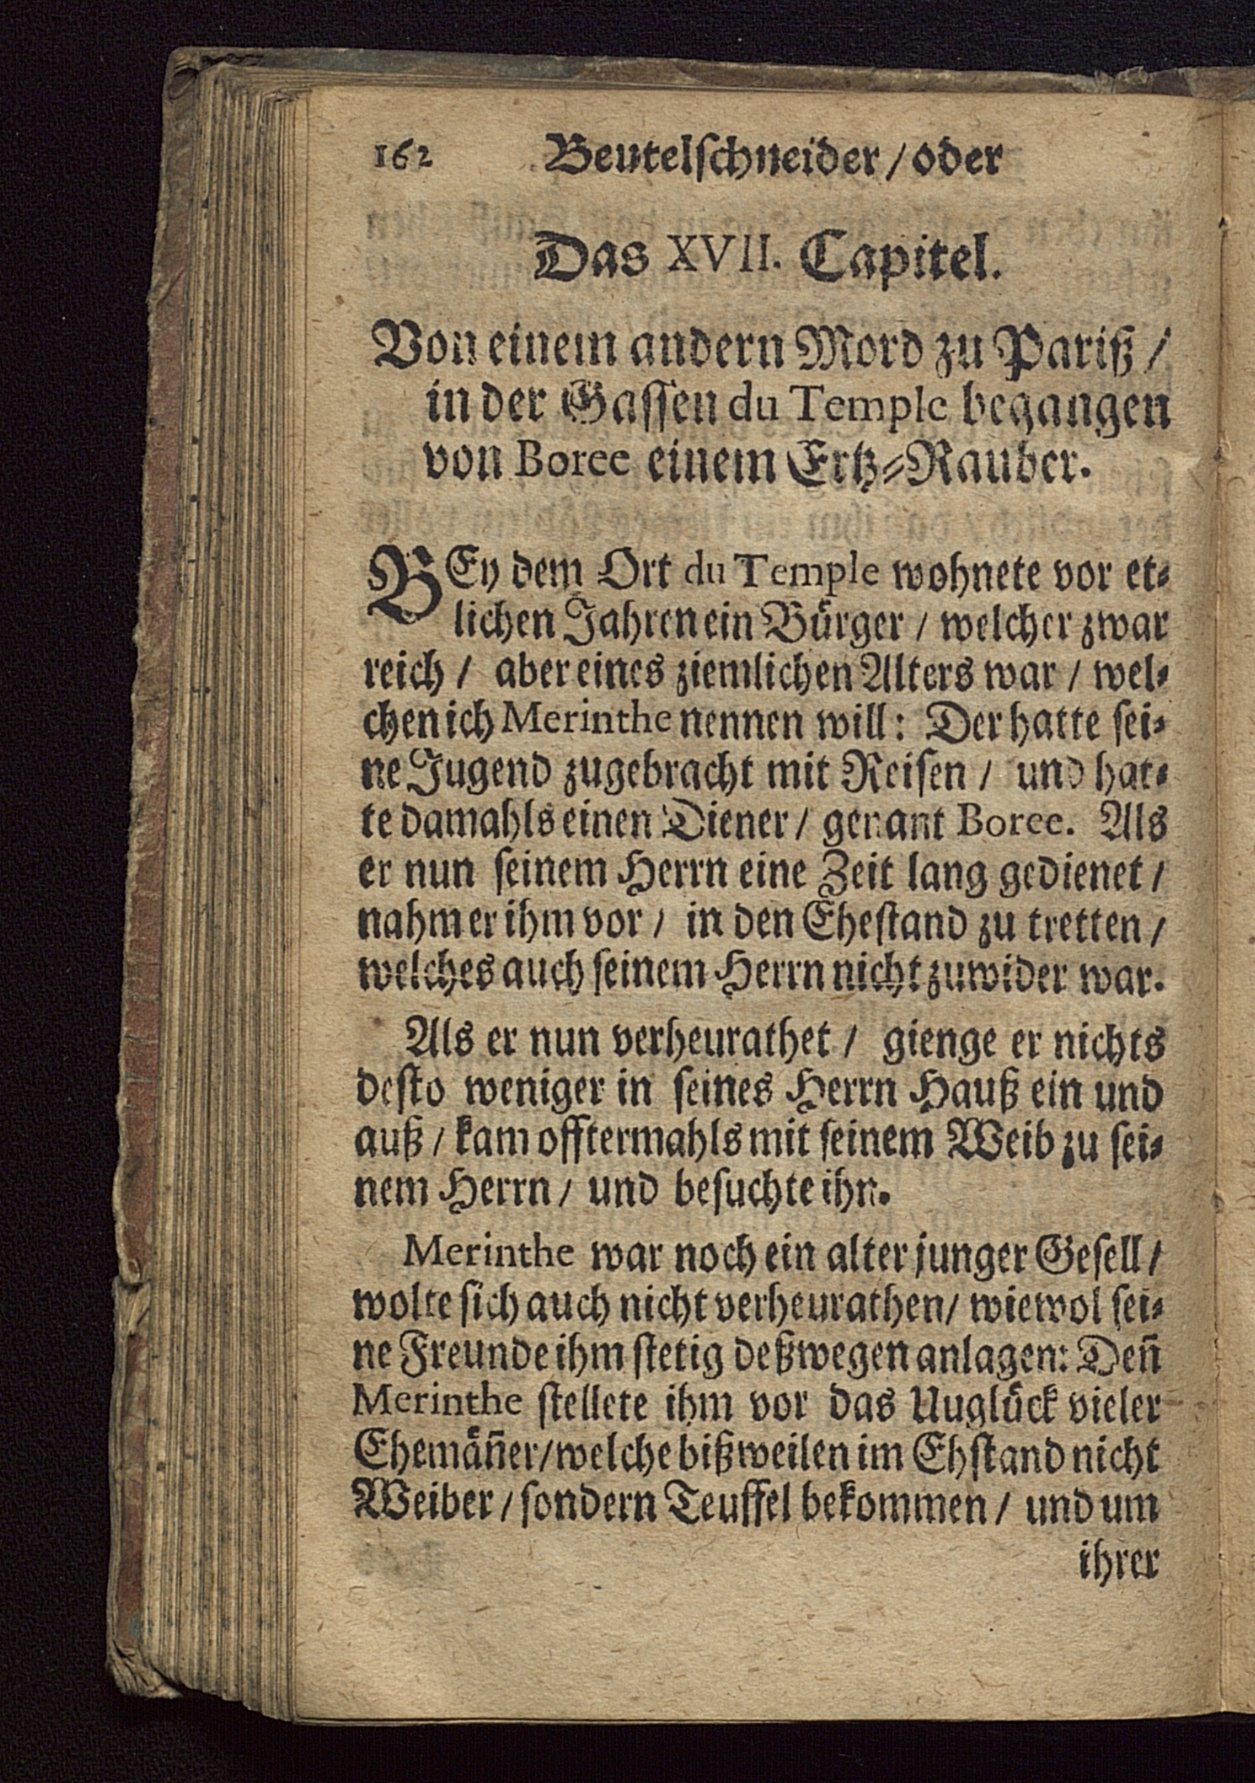 162 Beutelſchneider / oder
Das XVII. Capitel.
Von einem andern Mord zu Pariß /
in der Gaſſen du Temple begangen
von Boree einem Ertz⸗Rauber.
BEy dem Ort du Temple wohnete vor et⸗
lichen Jahren ein Bürger / welcher zwar
reich / aber eines ziemlichen Alters war / wel⸗
chen ich Merinthe nennen will: Der hatte ſei⸗
ne Jugend zugebracht mit Reiſen / und hat⸗
te damahls einen Diener / genant Boree. Als
er nun ſeinem Herrn eine Zeit lang gedienet /
nahm er ihm vor / in den Eheſtand zu tretten /
welches auch ſeinem Herrn nicht zuwider war.
Als er nun verheurathet / gienge er nichts
deſto weniger in ſeines Herrn Hauß ein und
auß / kam offtermahls mit ſeinem Weib zu ſei⸗
nem Herrn / und beſuchte ihn.
Merinthe war noch ein alter junger Geſell /
wolte ſich auch nicht verheurathen / wiewol ſei⸗
ne Freunde ihm ſtetig deßwegen anlagen: Deñ
Merinthe ſtellete ihm vor das Uuglück vieler
Ehemäñer / welche bißweilen im Ehſtand nicht
Weiber / ſondern Teuffel bekommen / und um
ihrer